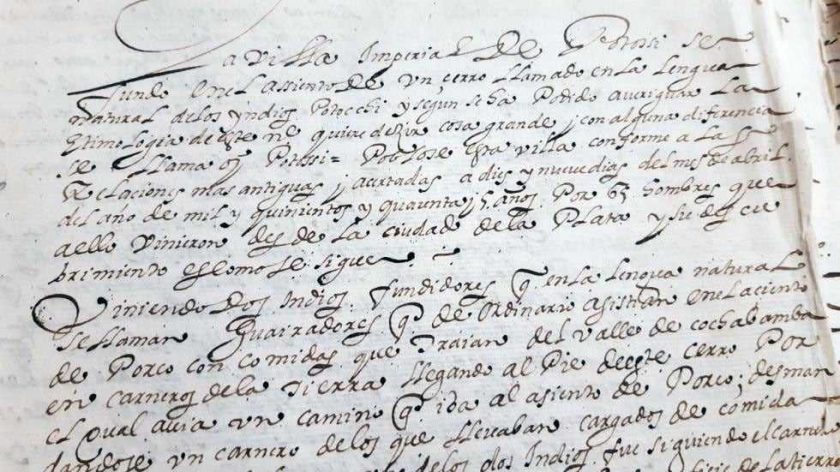 La villa Imperial De Potossi se
fundo en el assiento de un çerro llamado en la Lengua
natural de los yndios Potocchi y segun se ha Podido aueriguar La
Etimologia de este ne quire dezir cosa grande y con alguna diferencia
se llama oy Potossi = Poblose esta villa conforme a las
Relaciones mas antiguas y acertadas a dies y nueue dias del mes de abril
del año de mil y quinientos y quarenta y 5 años. Por 65 hombres que
aello vinieron desde la ciudad de la Plata y su descu
brimiento es como se sigue
Viniendo Dos Indios fundidores q en la lengua natural
se llaman Guairadores q de ordinario asistian en el aciento
de Porco con comidas que traian del valle de cochabamba
en carneros de la tierra llegando al Pie deeste cerro Por
el qual auia un camino q iba al asiento de Porco, desman
dandose un carnero de los que lleuaban cargados de comida
de los dos Indios fue siguiendo el carne
de la tierra